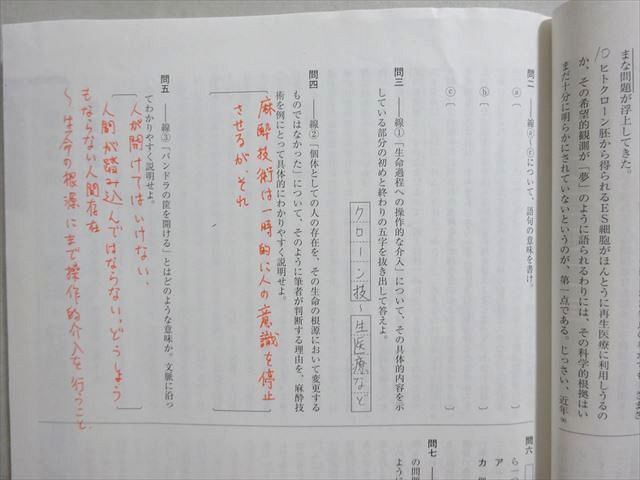 まな問題が浮上してきた。
10 ヒトクローン胚から得られるES細胞がほんとうに再生医療に利用しうるの
か、その希望的観測が「夢」のように語られるわりには、その科学的根拠はい
まだ十分に明らかにされていないというのが、第一点である。じっさい、近年 90
問二 ――線ⓐ～ⓒについて、語句の意味を書け。
ⓐ〔 〕
ⓑ〔 〕
ⓒ〔 〕
問三 ――線①「生命過程への操作的な介入」について、その具体的内容を示
している部分の初めと終わりの五字を抜き出して答えよ。
クローン技～生医療など
問四 ――線②「個体としての人の存在を、その生命の根源において変更する
ものではなかった」について、そのように筆者が判断する理由を、麻酔技
術を例にとって具体的にわかりやすく説明せよ。
麻酔技術は一時的に人の意識を停止
させるが、それ
問五 ――線③「パンドラの筐を開ける」とはどのような意味か。文脈に沿っ
てわかりやすく説明せよ。
人が開けてはいけない、
人間が踏み込んではならない、どうしよう
もならない人間存在
～生命の根源にまで操作的介入を行うこと
問六
ら一つ
ア
カ 個
問七
の問題
ように